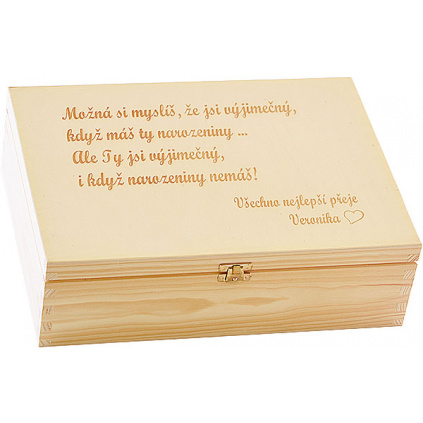 Možná si myslíš, že jsi výjimečný,
když máš ty narozeniny ...
Ale Ty jsi výjimečný,
i když narozeniny nemáš!
Všechno nejlepší přeje
Veronika ♡